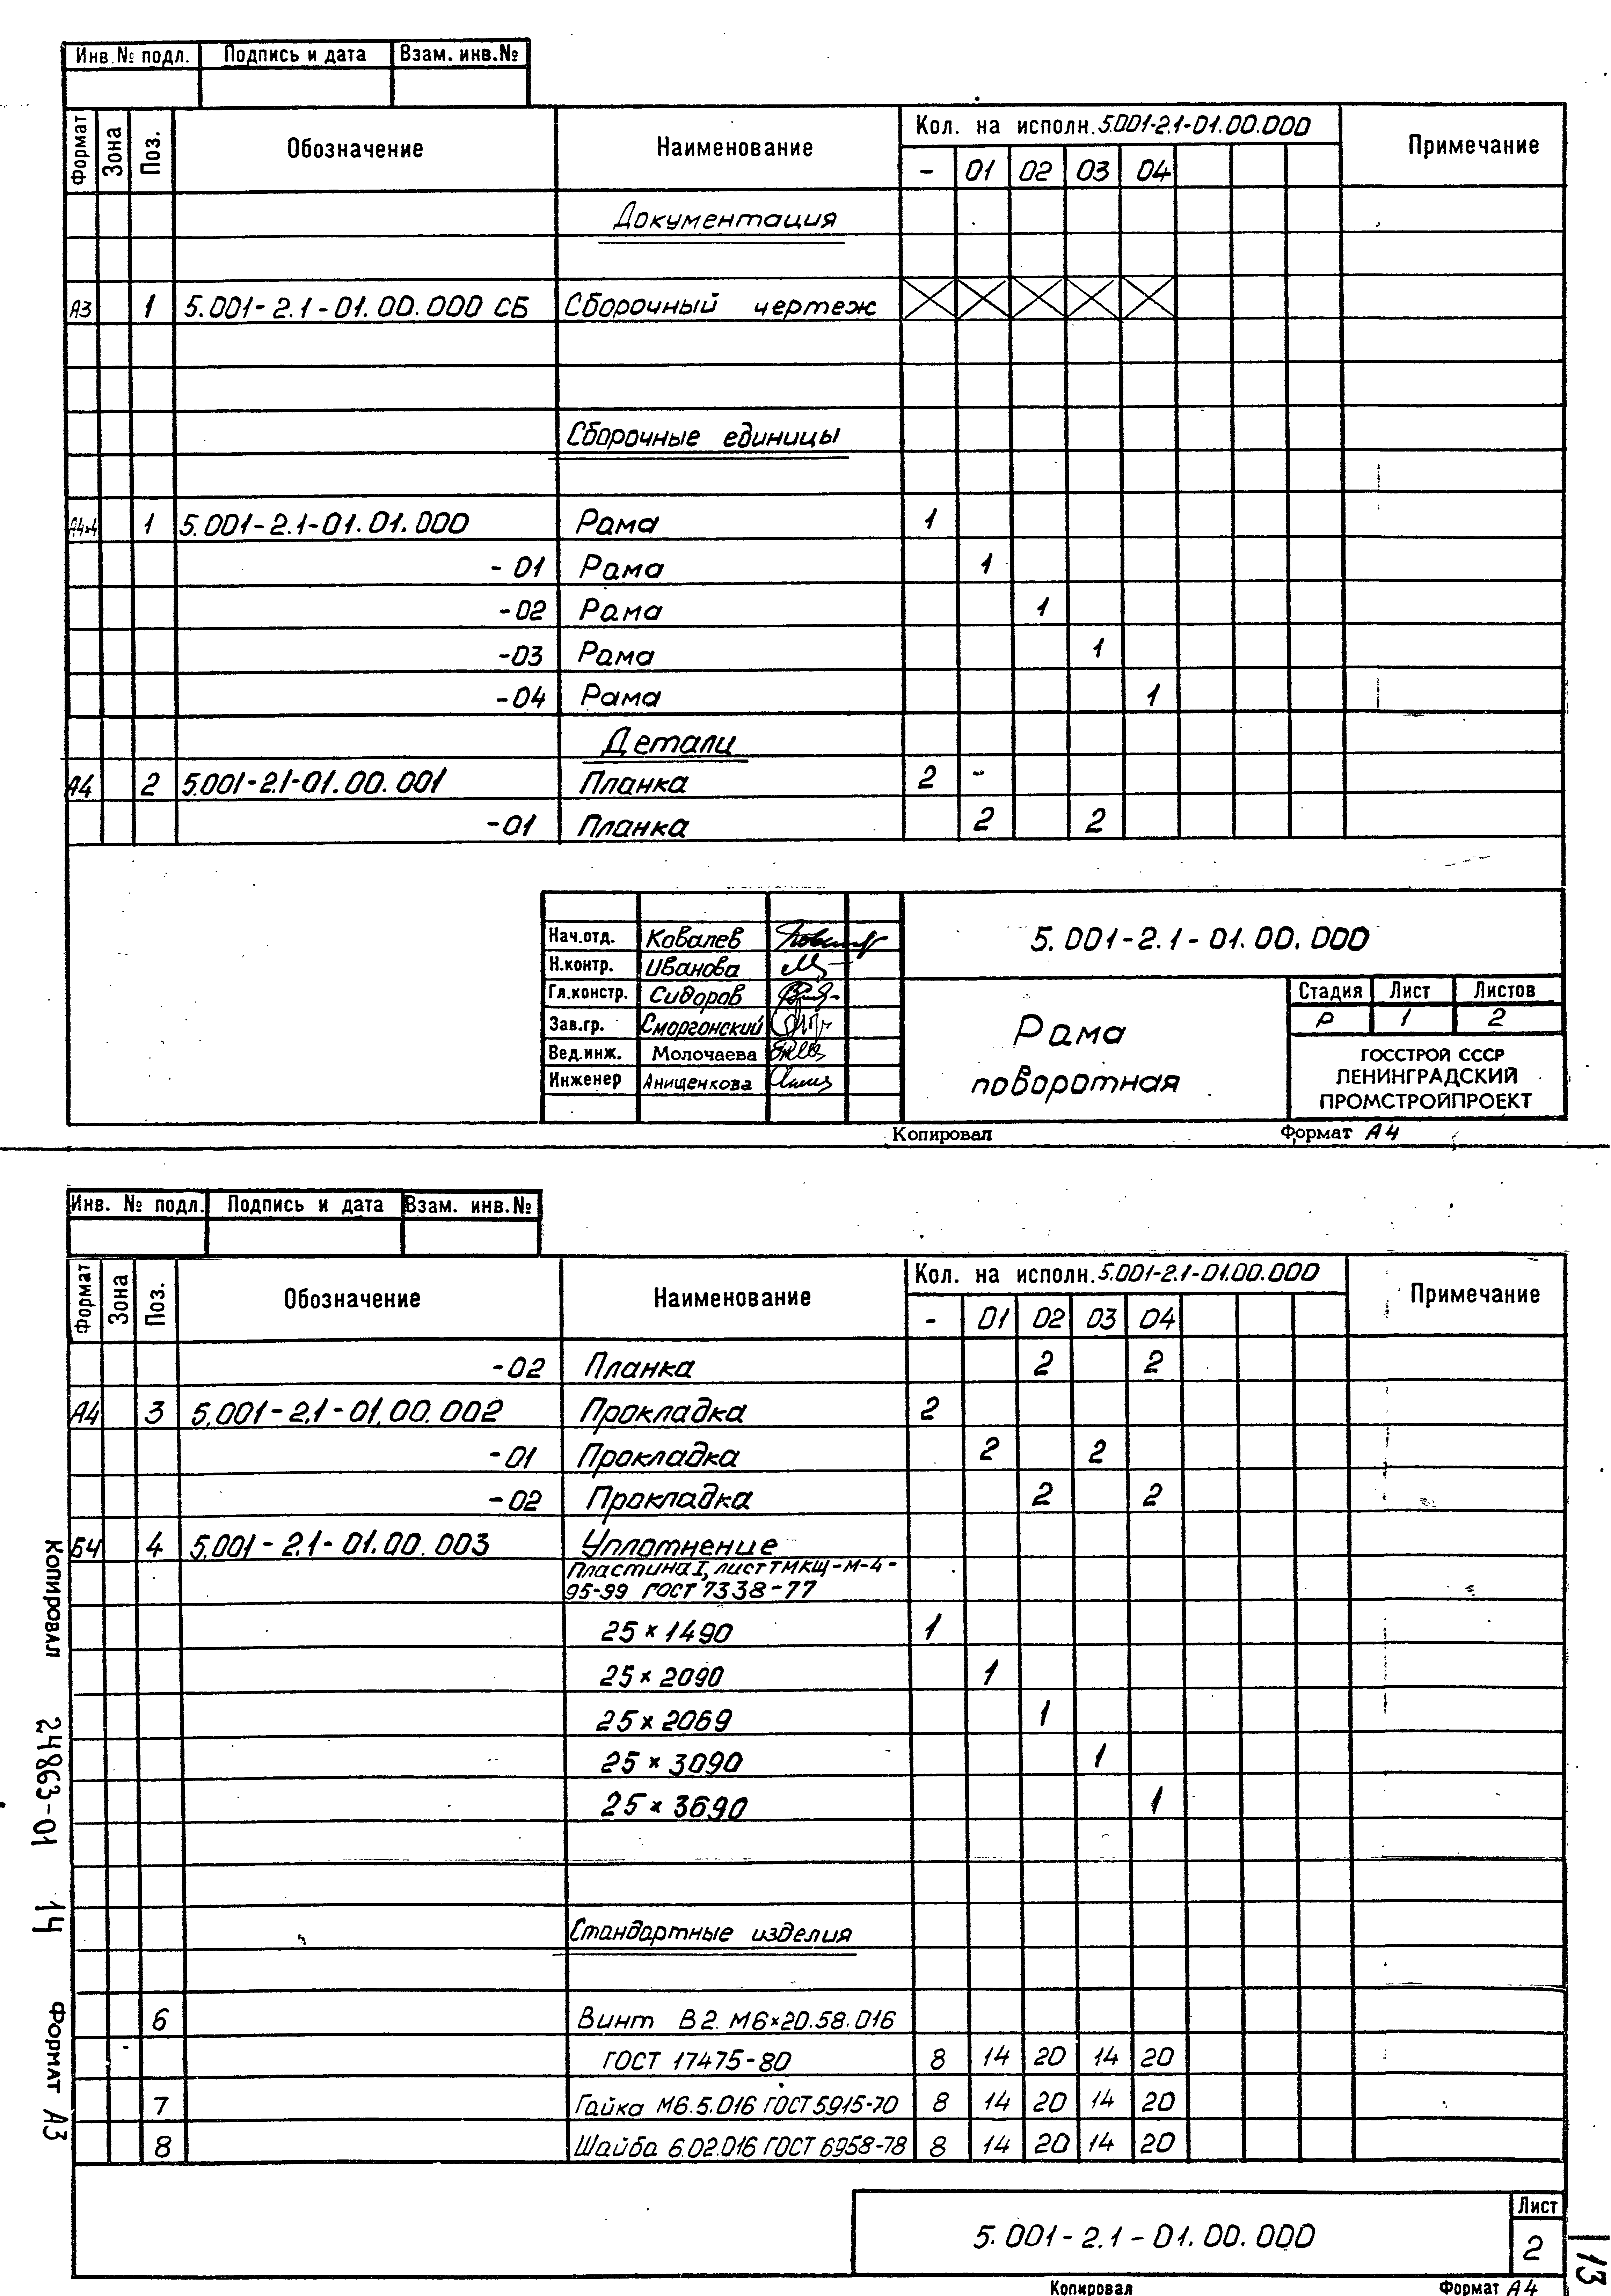 Инв.№ подл. Подпись и дата Взам. инв.№
Формат Зона Поз. Обозначение Наименование Кол. на исполн. 5.001-2.1-01.00.000 Примечание
- 01 02 03 04
Документация
А3 1 5.001-2.1-01.00.000 СБ Сборочный чертеж
Сборочные единицы
А4х4 1 5.001-2.1-01.01.000 Рама 1
-01 Рама 1
-02 Рама 1
-03 Рама 1
-04 Рама 1
Детали
А4 2 5.001-2.1-01.00.001 Планка 2 -
-01 Планка 2 2
Нач.отд. Ковалев
Н.контр. Иванова
Гл.констр. Сидоров
Зав.гр. Сморгонский
Вед.инж. Молочаева
Инженер Анищенкова
5.001-2.1-01.00.000
Рама
поворотная
Стадия Лист Листов
Р 1 2
ГОССТРОЙ СССР
ЛЕНИНГРАДСКИЙ
ПРОМСТРОЙПРОЕКТ
Копировал Формат А4
Инв. № подл. Подпись и дата Взам. инв.№
Формат Зона Поз. Обозначение Наименование Кол. на исполн. 5.001-2.1-01.00.000 Примечание
- 01 02 03 04
-02 Планка 2 2
А4 3 5.001-2.1-01.00.002 Прокладка 2
-01 Прокладка 2 2
-02 Прокладка 2 2
Б4 4 5.001-2.1-01.00.003 Уплотнение
Пластина I, лист ТМКЩ-М-4-
95-99 ГОСТ 7338-77
25×1490 1
25×2090 1
25×2069 1
25×3090 1
25×3690 1
Стандартные изделия
6 Винт В2.М6×20.58.016
ГОСТ 17475-80 8 14 20 14 20
7 Гайка М6.5.016 ГОСТ 5915-70 8 14 20 14 20
8 Шайба 6.02.016 ГОСТ 6958-78 8 14 20 14 20
5.001-2.1-01.00.000
Лист
2
Копировал Формат А4
Копировал 24863-01 14 Формат А3
13